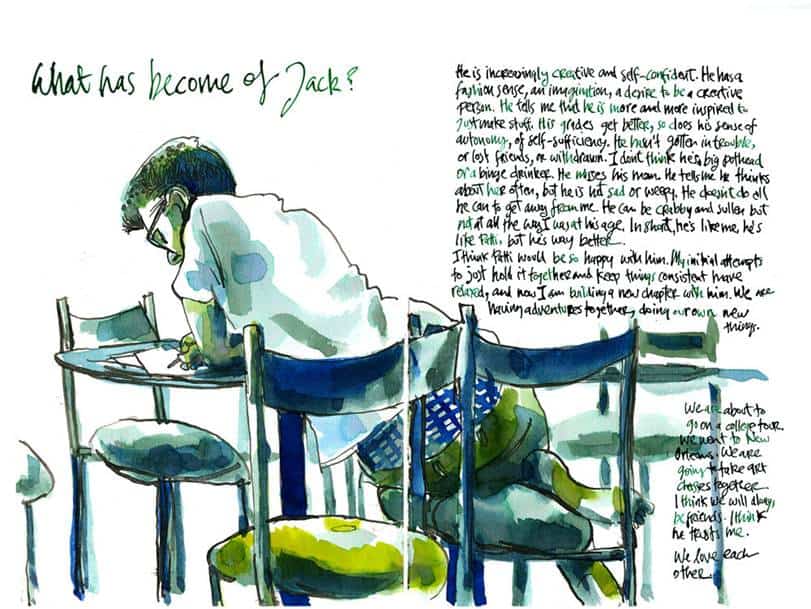 What has become of Jack?
He is increasingly creative and self-confident. He has a
fashion sense, an imagination, a desire to be a creative
person. He tells me that he is more and more inspired to
just make stuff. His grades get better, so does his sense of
autonomy, of self-sufficiency. He hasn't gotten in trouble,
or lost friends, or withdrawn. I don't think he's a big pothead
or a binge drinker. He misses his mom. He tells me he thinks
about her often, but he is not sad or weepy. He doesn't do all
he can to get away from me. He can be crabby and sullen but
not at all the way I was at his age. In short, he's like me, he's
like Patti, but he's way better.
I think Patti would be so happy with him. My initial attempts
to just hold it together and keep things consistent have
relaxed, and now I am building a new chapter with him. We are
having adventures together, doing our own new
things.
We are about to
go on a college tour.
We went to New
Orleans. We are
going to take art
classes together.
I think we will always
be friends. I think
he trusts me.
We love each
other.